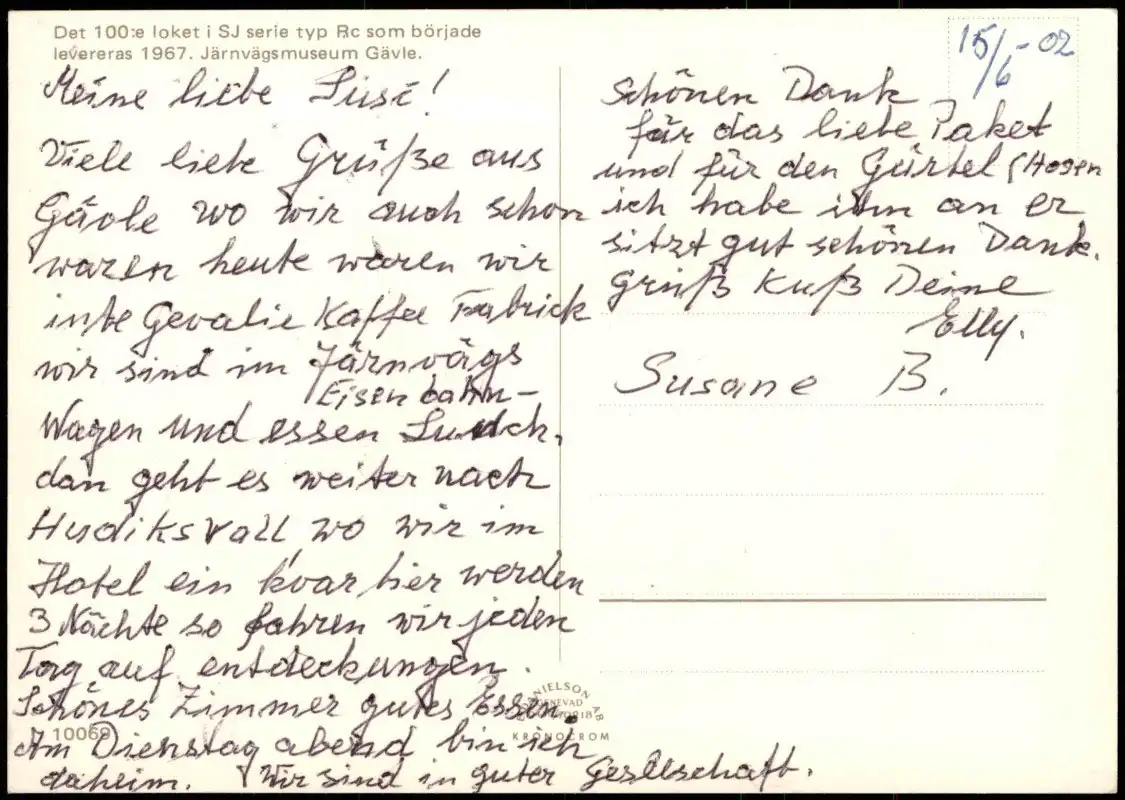 Det 100:e loket i SJ serie typ Rc som började
levereras 1967. Järnvägsmuseum Gävle.
15/6-02
Meine liebe Susi!
Viele liebe Grüße aus
Gävle wo wir auch schon
waren heute waren wir
in be Gevalie Kaffee Fabrick
wir sind im Järnvägs
Eisenbahn-
Wagen und essen Lunch,
dan geht es weiter nach
Hudiksvall wo wir im
Hotel ein kvartier werden
3 Nächte so fahren wir jeden
Tag auf entdeckungen.
Schönes Zimmer gutes Essen.
Am Dienstag abend bin ich
daheim. Wir sind in guter Gesellschaft.
Schönen Dank
für das liebe Paket
und für den Gürtel (Hosen
ich habe ihm an er
sitzt gut schönen Dank.
Gruß Kuß Deine
Elly.
Susane B.
10069
DANIELSON
KRONOCROM